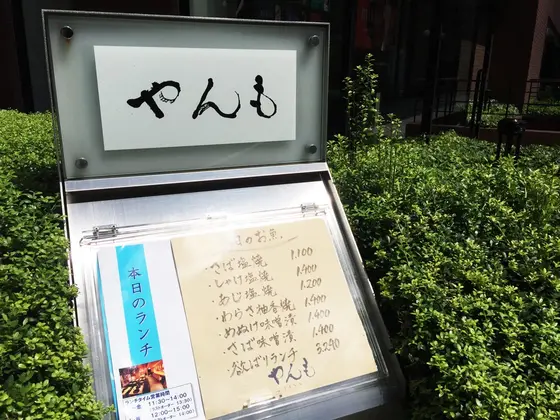 やんも
本日のランチ
のお魚
・さば塩焼 1.100
・しゃけ塩焼 1.400
・あじ塩焼 1.200
・わらさ柚香焼 1.400
・めぬけ味噌漬 1.400
・さば味噌漬 1.400
・欲ばりランチ
やんも
ランチタイム営業時間
11:30~14:00
12:00~15:00